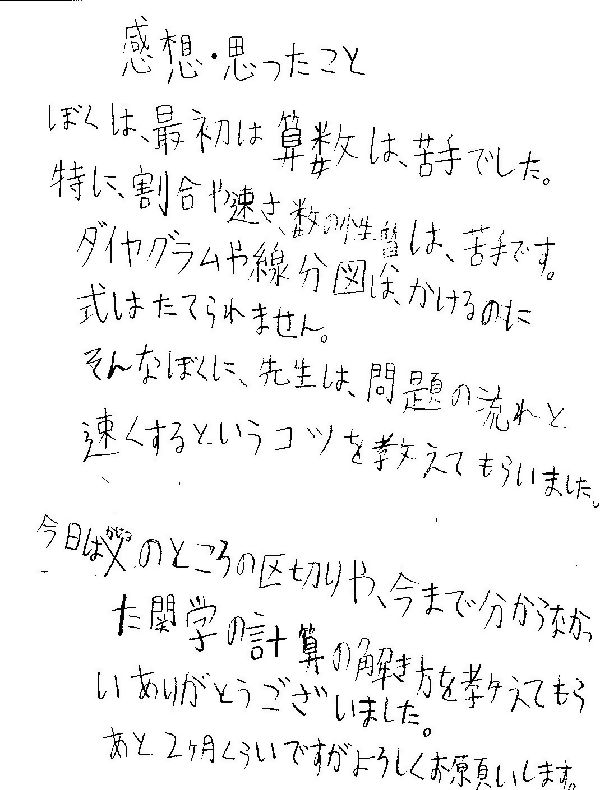 感想・思ったこと
ぼくは、最初は算数は、苦手でした。
特に、割合や速さ、数の性質は、苦手です。
ダイヤグラムや線分図は、かけるのに
式はたてられません。
そんなぼくに、先生は、問題の流れと
速くするというコツを教えてもらいました。
今日は のところの区切りや、今まで分からなかっ
た関学の計算の解き方を教えてもら
いありがとうございました。
あと2ヶ月くらいですがよろしくお願いします。